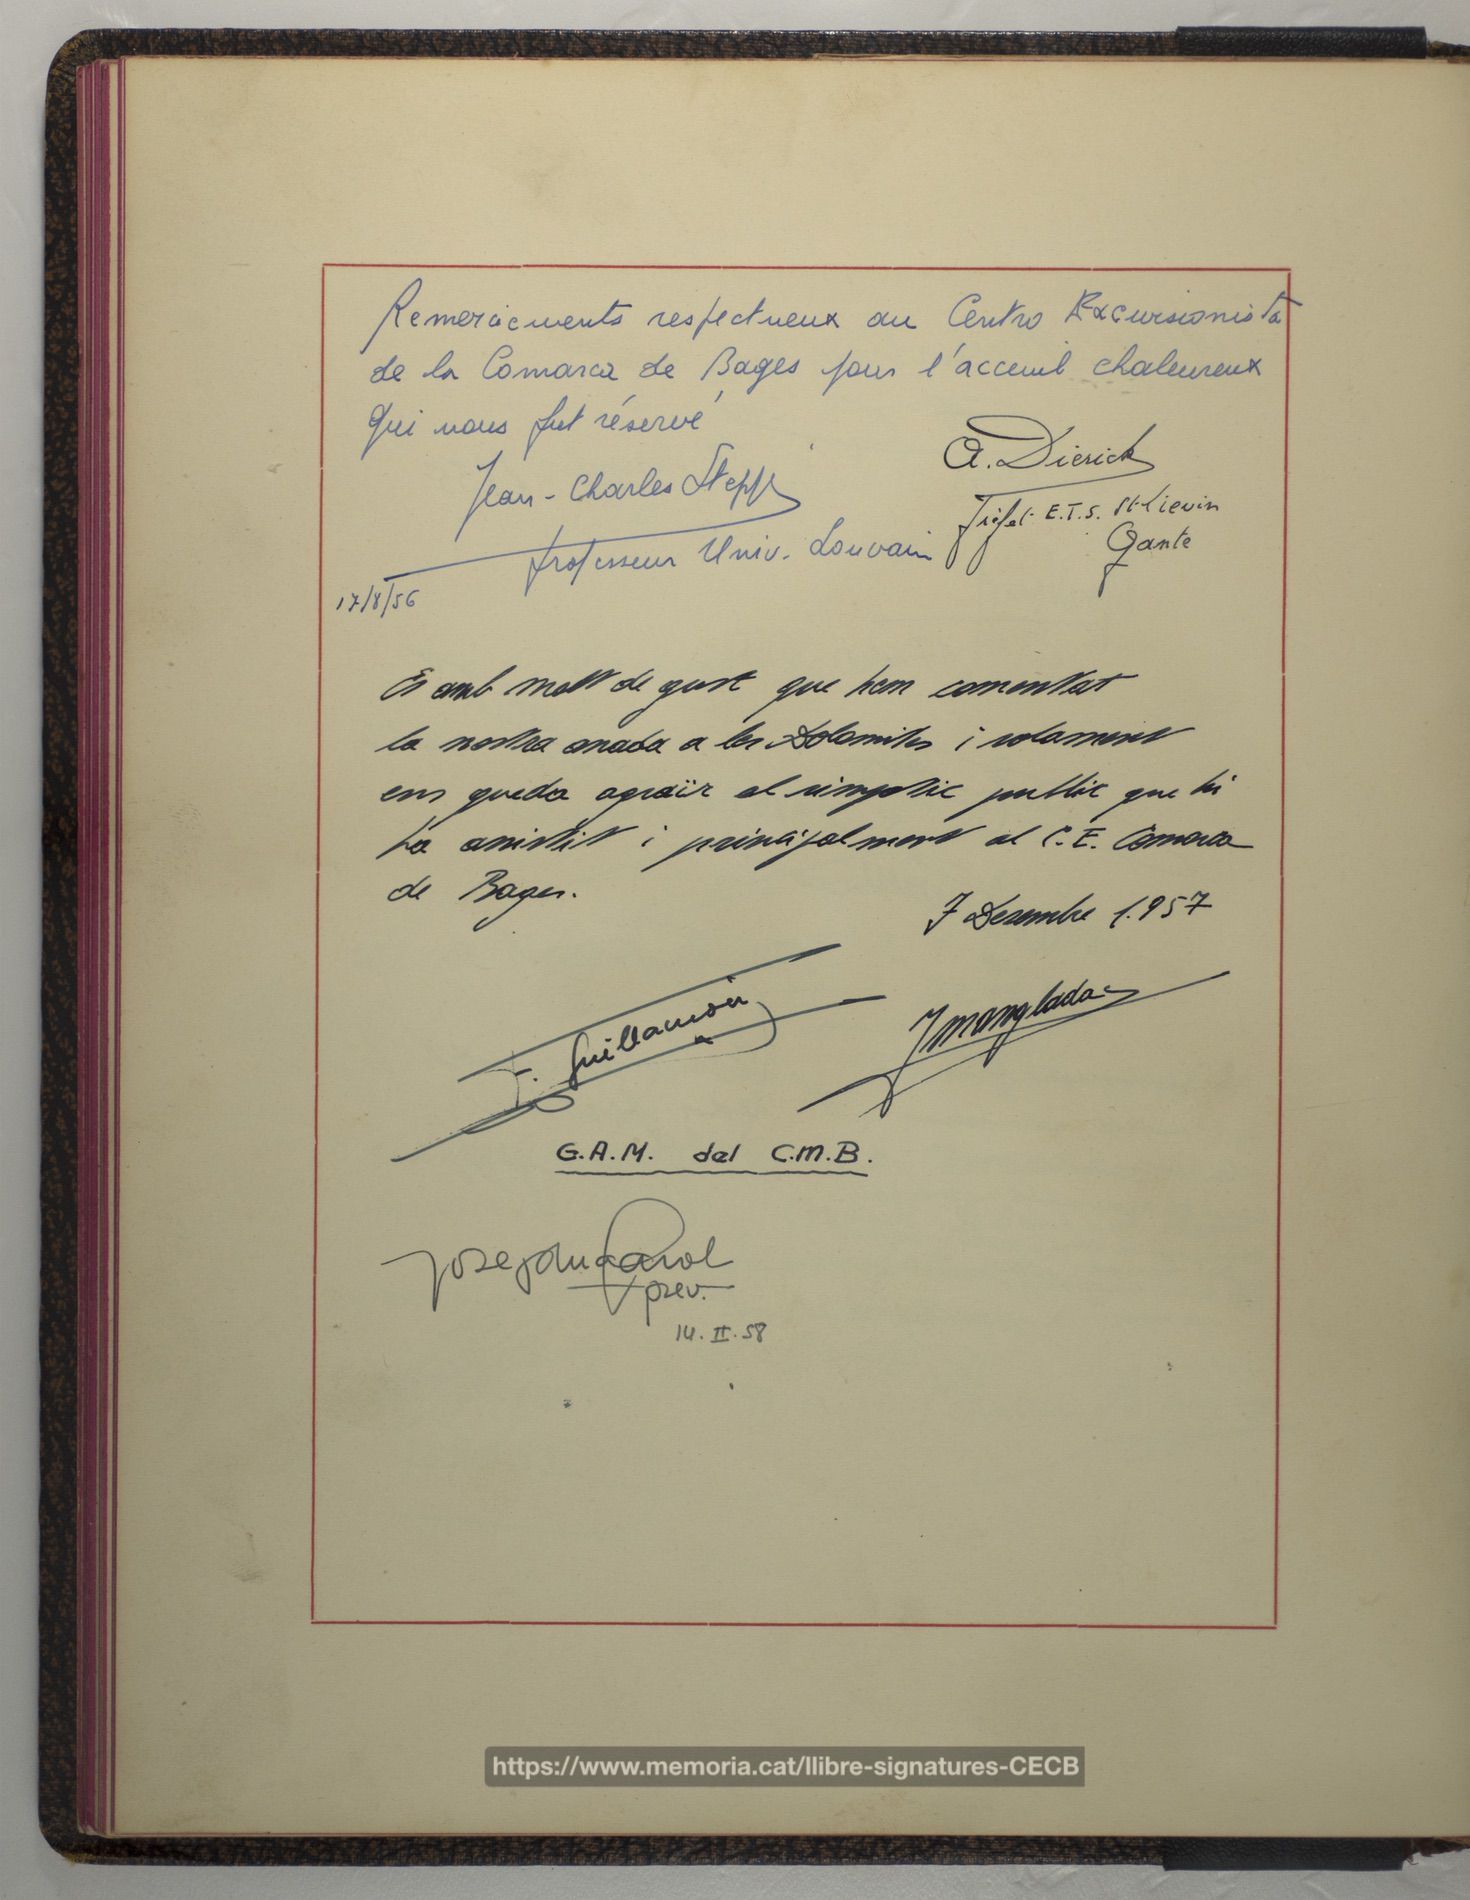 Remerciements respectueux au Centro Excursionista
de la Comarca de Bages pour l'acceuil chaleureux
qui nous fut réservé
Jean-Charles Steppe
Professeur Univ. Louvain
17/8/56
A. Dierick
E.T.S. St-Lievin
Gante
Es amb molt de gust que hem comentat
la nostra anada a les Dolomites i solament
ens queda agraïr al simpatic public que hi
ha assistit i principalment al C.E. Comarca
de Bages.
7 Desembre 1.957
F. Guillamon
J Manglada
G.A.M. del C.M.B.
prev.
14.II.58
https://www.memoria.cat/llibre-signatures-CECB